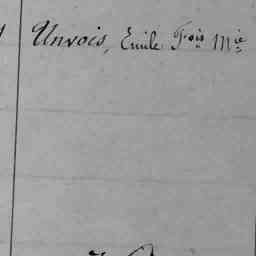 Unvois, Emile Fois Mie